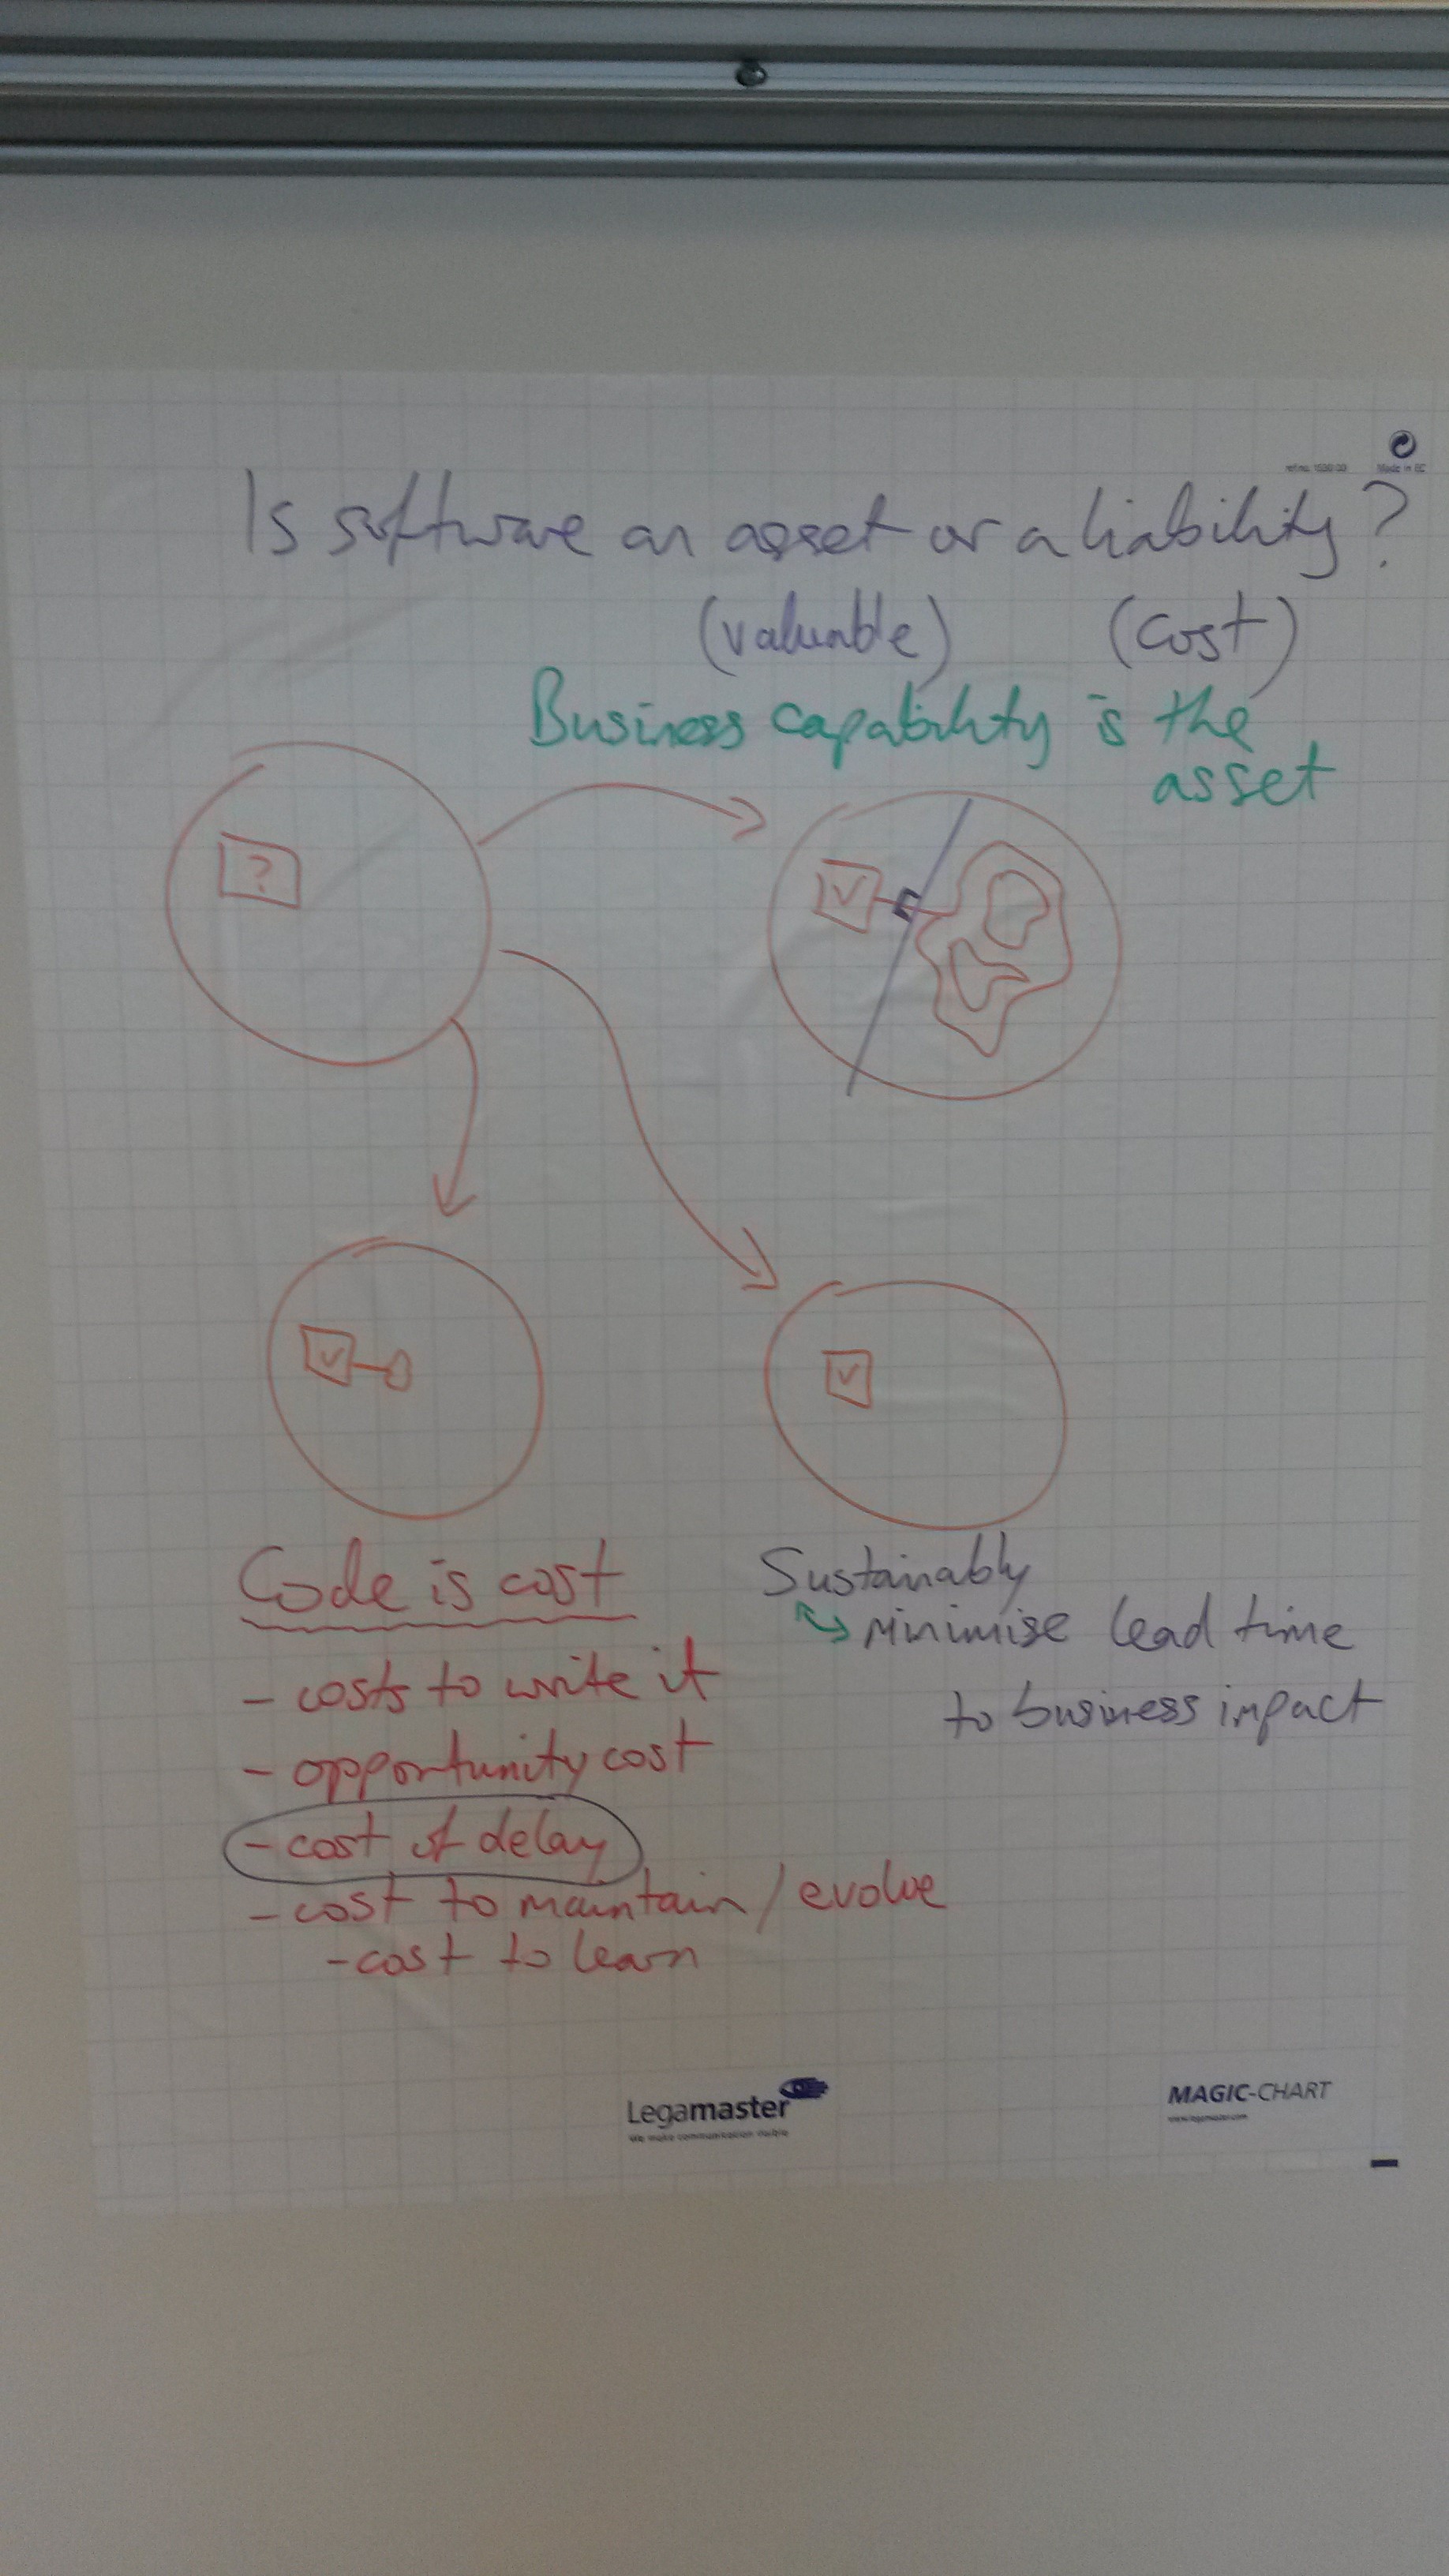 Made in EC
Is software an asset or a liability?
(valuable) (cost)
Business capability is the
asset
?
Code is cost
- costs to write it
- opportunity cost
- cost of delay
- cost to maintain / evolve
- cost to learn
Sustainably
Minimise lead time
to business impact
Legamaster
We make communication visible
MAGIC-CHART
www.legamaster.com